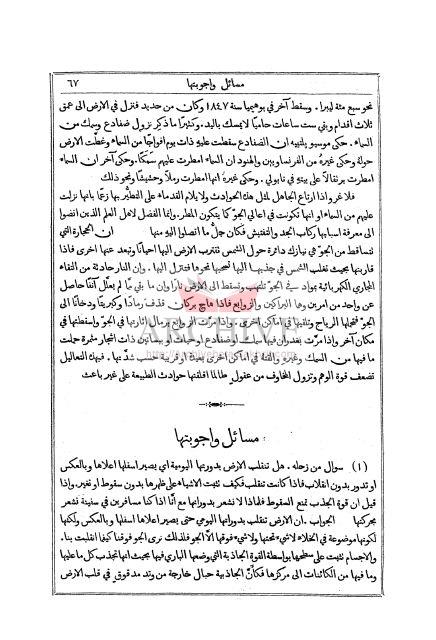 مسائل واجوبتها ٦٧
نحو سبع مئة ليبرا. وسقط آخر في بوهيميا سنة ١٨٤٧ وكان من حديد فنزل في الارض الى عمق
ثلاث اقدام وبقي ست ساعات حاميًا لا يمسك باليد. وكثيرًا ما ذكر نزول ضفادع وسمك من
السماء. حكى موسيو بلتييه ان الضفادع سقطت عليه ذات يوم افواجًا من السماء وغطّت الارض
حولة وحكى غيرهُ من الفرنساويين والهنود ان السماء امطرت عليهم سمكًا. وحكى آخر ان السماء
امطرت برتقالًا على بيته في نابولي. وحكى غيرهُ انها امطرت رملًا وحشيشًا ونحو ذلك
فلا غرو اذا ارتاع الجاهل لمثل هذه الحوادث ولا يلام القدماء على التطيُّر بها زعمًا بانها نزلت
عليهم من السماء او انها تكونت في اعالي الجو كما يتكون المطر. وانما الفضل لاهل العلم الذين انضوا
الى معرفة اسبابها ركاب الجد والتفتيش فكان جلّ ما اتصلوا اليه منها ان الحجارة التي
تتساقط من الجو هي نيازك دائرة حول الشمس تقترب الارض اليها احيانًا وتبعد عنها اخرى فاذا
قاربتها بحيث تغلب الشمس في جذبها اليها تجذبها نحوها فتنزل اليها. وان النار حادثة من التقاء
المجاري الكهربائية بمواد في الجو تلتهب وتسقط الى الارض نارًا وان ما بقي مما لم يعلَّل آنفًا حاصل
عن واحد من امرين وها البراكين والزوابع فاذا هاج بركان قذف رمادًا وكبريتًا ودخانًا الى
الجو فتحملها الرياح وتلقيها في اماكن اخرى. واذا مرّت الزوابع برمال اثارتها في الجو واسقطتها في
مكان آخر واذا مرّت بغدران فيها سمك او ضفادع او حيات او ببساتين ذات اشجار مثمرة حملت
ما فيها من السمك وغيره والقته في اماكن اخرى بعيدة او قريبة حسب شدّتها. فبهذه التعاليل
تضعف قوة الوهم وتزول المخاوف من عقول طالما اقلقتها حوادث الطبيعة على غير باعث
مسائل واجوبتها
(١) سوال من زحله. هل تنقلب الارض بدورتها اليومية اي يصير اسفلها اعلاها وبالعكس
او تدور بدون انقلاب فاذا كانت تنقلب فكيف تثبت الاشياء على ظهرها بدون سقوط او تغير. واذا
قيل ان قوة الجذب تمنع السقوط فلماذا لا نشعر بدورانها مع أنّا اذا كنا مسافرين في سفينة نشعر
بحركتها الجواب. ان الارض تنقلب بدورانها اليومي حتى يصير اعلاها اسفلها وبالعكس ولكنها
لكونها موضوعة في الخلاء لاشيء تحتها ولاشيء فوقها الّا الجو فلذلك نرى الجو فوقنا كيفما انقلبت بنا.
والاجسام تثبت على سطحها بواسطة القوة الجاذبية التي وضعها الباري فيها بحيث انها تجذب كل ما عليها
وما فيها من الكائنات الى مركزها فكأنَّ الجاذبية حبال خارجة من وتد مدقوق في قلب الارض
ARCHIVE